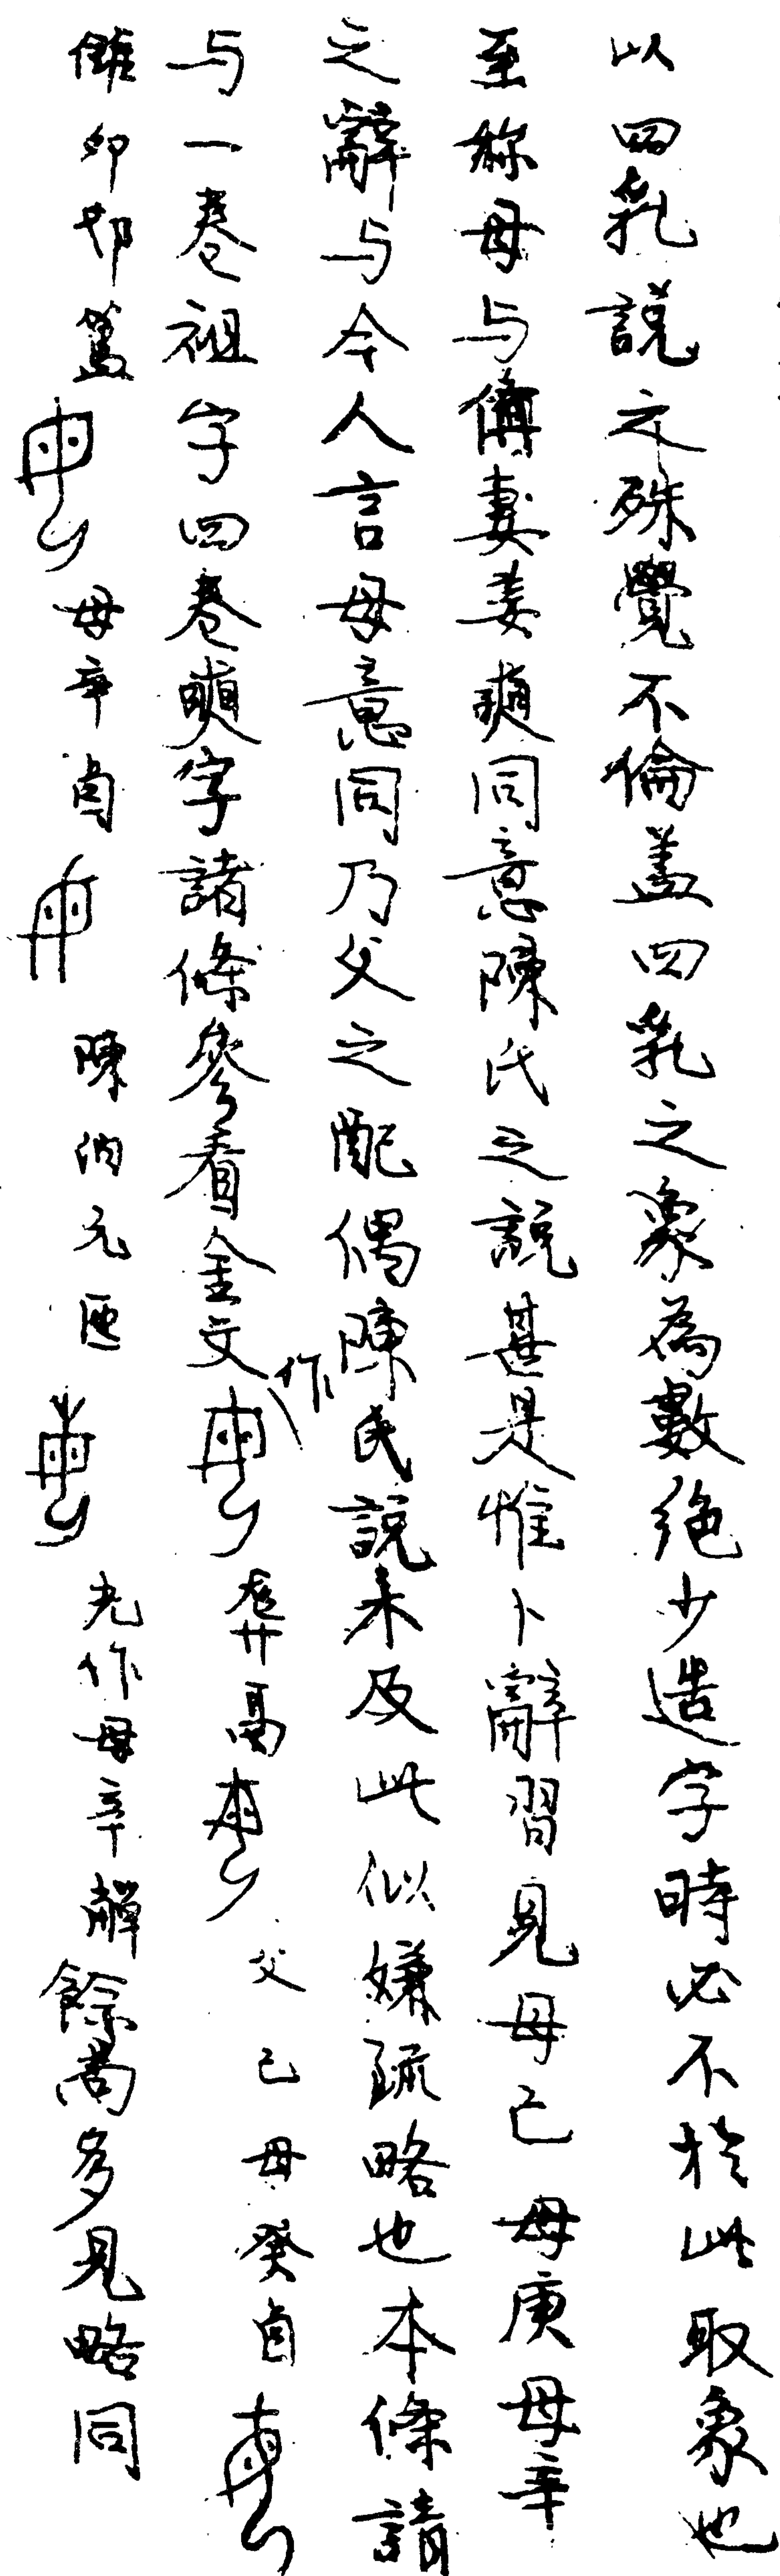 以四乳說之殊覺不倫蓋四乳之象為數絕少造字時必不於此取象也
至稱母与傳妻妾奭同意陳氏之說甚是惟卜辭習見母己母庚母辛
之辭与今人言母意同乃父之配偶陳氏說未及此似嫌疏略也本條請
与一卷祖字四卷奭字諸條參看金文作 鬲 父己母癸卣
雔卯𨙻簋 母辛卣 陳伯元匜 光作母辛觶餘尚多見略同